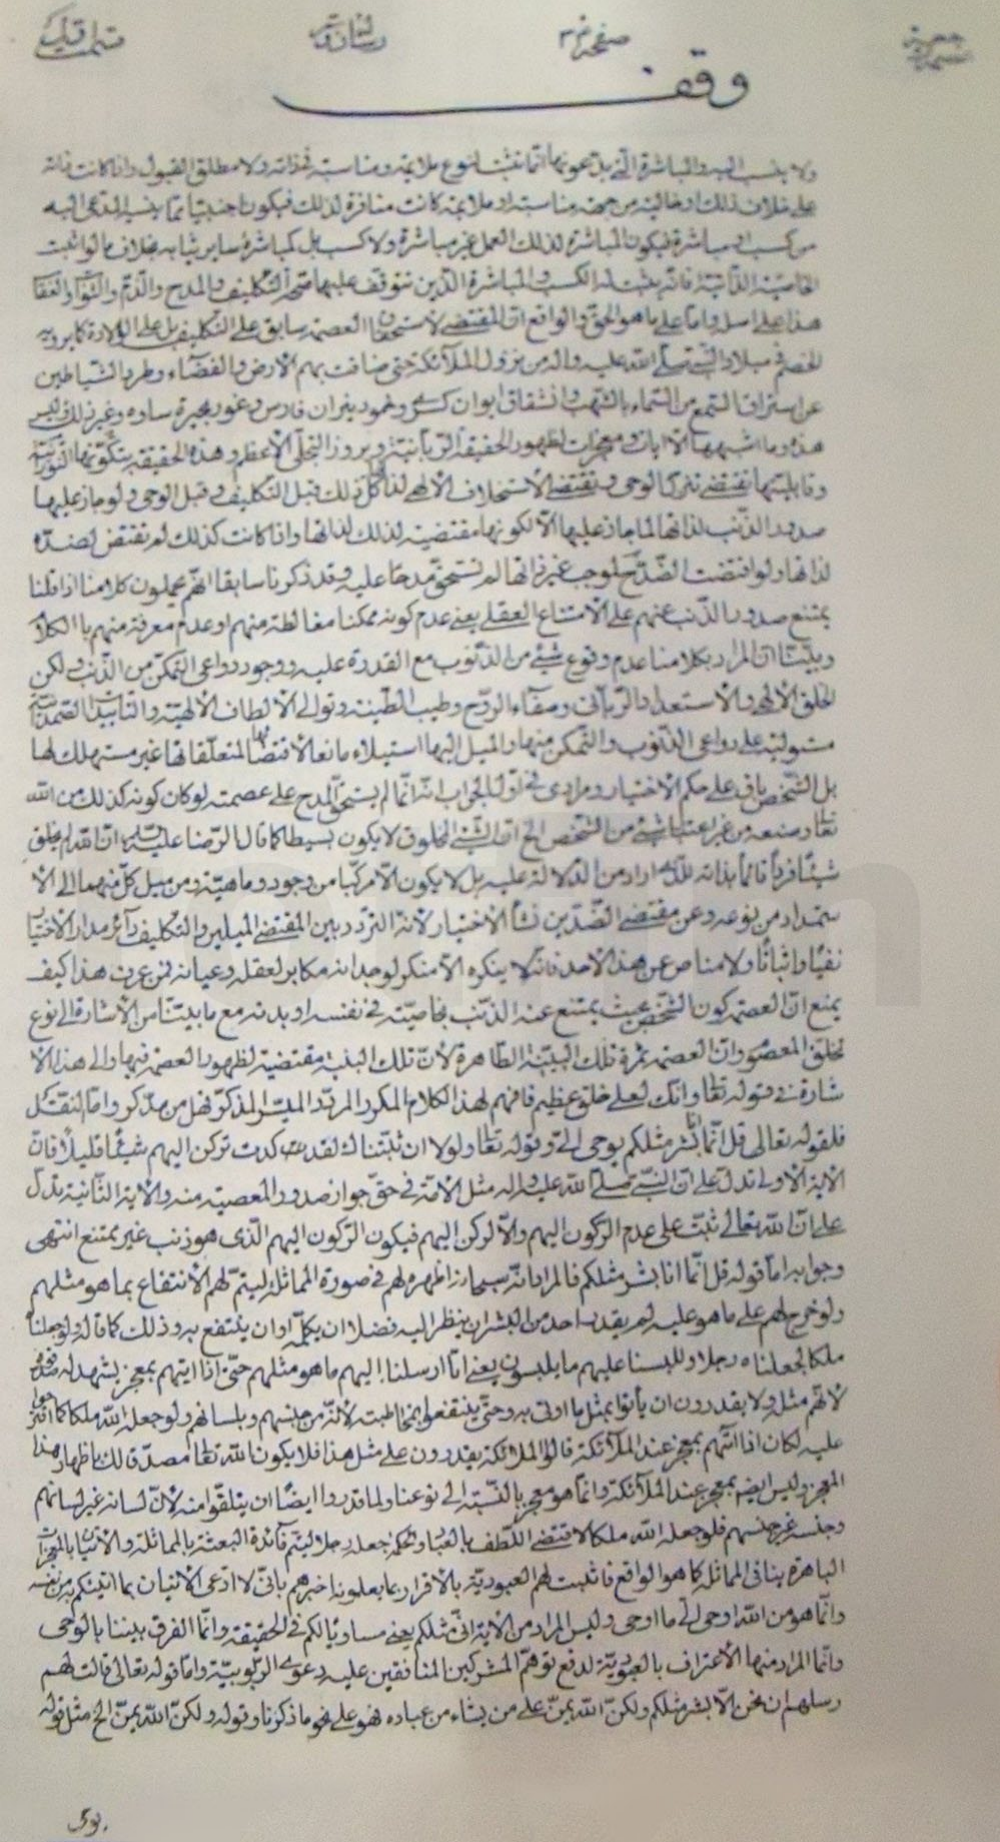 صفحه
وقف
ولا ينسب اليه والمباشرة التى يدعونها انما تثبت لنوع ملايمة ومناسبة لذاته ولا مطلق القبول واذا كانت ذاته
على خلاف ذلك او خالية من جهة مناسبة او ملايمة كانت منافرة لذلك فيكون اجنبيا مما ينسب المدعى اليه
من كسب او مباشرة فيكون المباشرة لذلك العمل غير مباشرة ولا كسب بل كمباشرة ساير ثيابه بخلاف ما لو اثبت
الخاصية الذاتية فانه يثبت له الكسب والمباشرة الذين تتوقف عليهما صحة التكليف والمدح والذم والثواب والعقاب
هذا على اصله واما على ما هو الحق والواقع ان المقتضى لاستحقاق العصمة سابق على التكليف بل على الولادة كما يرويه
الخصم فى ميلاد النبى صلى الله عليه واله من نزول الملائكة حتى ضاقت بهم الارض والفضاء وطرد الشياطين
عن استراق السمع من السماء بالشهب وانشقاق ايوان كسرى وخمود نيران فارس وغور بحيرة ساوه وغير ذلك فليس
هذه وما اشبهها الا ايات ومعجزات لظهور الحقيقة الربانية وبروز التجلى الاعظم وهذه الحقيقة بتكونها النورانية
وقابليتها تقتضى نزول الوحى وتقتضى الاستخلاف الالهى لذاتها كل ذلك قبل التكليف وقبل الوحى ولو جاز عليها
صدور الذنب لذاتها لما جاز عليها الا لكونها مقتضية لذلك لذاتها واذا كانت كذلك لم تقتض لضده
لذاتها ولو اقتضت الضد ح لوجب غير ذاتها لم تستحق مدحا عليه وقد ذكرنا سابقا انهم يحملون كلامنا اذا قلنا
يمتنع صدور الذنب عنهم على الامتناع العقلى يعنى عدم كونه ممكنا مغالطة منهم او عدم معرفة منهم بالكلام
وبينا ان المراد بكلامنا عدم وقوع شىء من الذنوب مع القدرة عليه ووجود دواعى التمكن من الذنب ولكن
الخلق الالهى والاستعداد الربانى وصفاء الروح وطيب الطينة وتوالى الالطاف الالهية والتأييدات الصمدانية
مستولية على دواعى الذنوب والتمكن منها والميل اليها استيلاء مانعا لاقتضائها لمتعلقاتها غير مستهلك لها
بل الشخص باق على حكم الاختيار ومرادى فى اول الجواب انه انما لم يستحق المدح على عصمته لو كان كونه كذلك من الله
تعالى وصنعه من غير اعتبار شىء من الشخص الخ ان الشىء المخلوق لا يكون بسيطا كما قال الرضا عليه السلام ان الله لم يخلق
شيئا فردا قائما بذاته للذى اراد من الدلالة عليه بل لا يكون الا مركبا من وجود وماهية ومن ميل كل منهما الى الا
ستمداد من نوعه وعن مقتضى الضدين نشأ الاختيار لانه التردد بين المقتضى الميلين والتكليف دائر مدار الاختيار
نفيا واثباتا ولا مناص عن هذا لاحد فانه لا ينكره الا منكر لوجدانه مكابر لعقله وعيانه فمن عرف هذا كيف
يمنع ان العصمة كون الشخص بحيث يمتنع عنه الذنب بخاصية فى نفسه او بدنه مع ما بينا من الاشارة الى نوع
تخلق المعصوم وان العصمة ثمرة تلك البنية الطاهرة لان تلك البنية مقتضية لظهور العصمة فيها والى هذا الا
شارة فى قوله تعالى وانك لعلى خلق عظيم فافهم لهذا الكلام المكرر المردد الميسر للمذكر فهل من مدكر واما النقل
فلقوله تعالى قل انما انا بشر مثلكم يوحى الى وقوله تعالى ولولا ان ثبتناك لقد كدت تركن اليهم شيئا قليلا فان
الاية الاولى تدل على ان النبى صلى الله عليه واله مثل الامة فى حق جواز صدور المعصية منه والاية الثانية تدل
على ان الله تعالى ثبته على عدم الركون اليهم والا لركن اليهم فيكون الركون اليهم الذى هو ذنب غير ممتنع انتهى
وجوابه اما قوله قل انما انا بشر مثلكم فالمراد انه سبحانه اظهره لهم فى صورة المماثلة ليتم لهم الانتفاع بما هو مثلهم
ولو خرج لهم على ما هو عليه لم يقدر احد من البشر ان ينظر اليه فضلا ان يكلمه او ان ينتفع به وذلك كما قال ولو جعلناه
ملكا لجعلناه رجلا وللبسنا عليهم ما يلبسون يعنى انا ارسلنا اليهم ما هو مثلهم حتى اذا اتيهم بمعجز يشهد له صدقه
لانهم مثله ولا يقدرون ان يأتوا بمثل ما اوتى به وحتى ينتفعوا بمخاطبته لانه من جنسهم وبلسانهم ولو جعل الله ملكا كما اقترحوا
عليه لكان اذا اتيهم بمعجز عند الملائكة قالوا الملائكة يقدرون على مثل هذا فلا يكون الله تعالى مصدقا لك باظهار هذا
المعجز وليس ايضا بمعجز عند الملائكة وانما هو معجز بالنسبة الى نوعنا ولما قدروا ايضا ان يتلقوا منه لان لسانه غير لسانهم
وجنسه غير جنسهم فلو جعل الله ملكا لاقتضى اللطف بالعباد والحكمة جعله رجلا ليتم فائدة البعثة بالمماثلة والاتيان بالمعجزات
الباهرة ينافى المماثلة كما هو الواقع فاثبت لهم العبودية بالاقرار بما يعلمونه اخبرهم بانى لا ادعى الاتيان بما اتيتكم من نفسه
وانما هو من الله اوحى الى ما اوحى وليس المراد من الاية انى مثلكم يعنى مساويا لكم فى الحقيقة وانما الفرق بيننا بالوحى
وانما المراد منها الاعتراف بالعبودية لدفع توهم المشركين المنافقين عليه دعوى الربوبية واما قوله تعالى قالت لهم
رسلهم ان نحن الا بشر مثلكم ولكن الله يمن على من يشاء من عباده فهو على نحو ما ذكرنا وقوله ولكن الله يمن الخ مثل قوله
يوحى